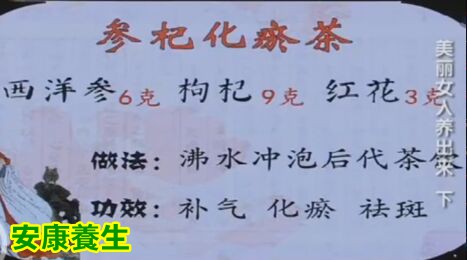 参杞化瘀茶
西洋参6克 枸杞9克 红花3克
做法：沸水冲泡后代茶饮
功效：补气 化瘀 祛斑
美丽女人养出来 下
安康養生